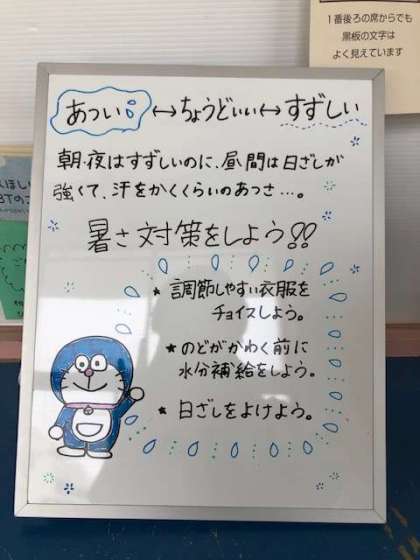 1番後ろの席からでも
黒板の文字は
よく見えています
あつい↔ちょうどいい↔すずしい
朝・夜はすずしいのに、昼間は日ざしが
強くて、汗をかくくらいのあつさ…。
暑さ対策をしよう!!
★ 調節しやすい衣服を
チョイスしよう。
★ のどがかわく前に
水分補給をしよう。
★ 日ざしをよけよう。